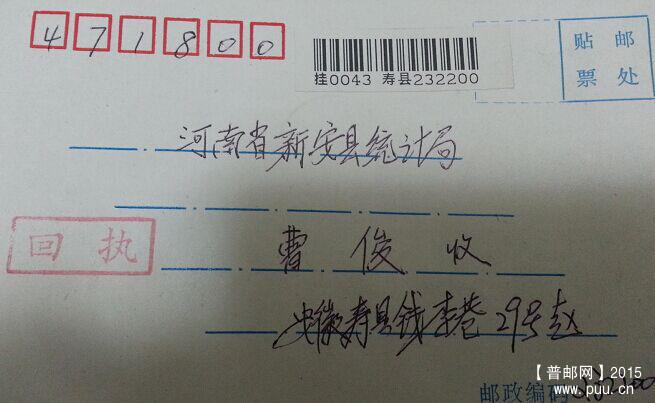 471800
挂0043 寿县232200
贴 邮
票 处
河南省新安县统计局
回执
曹俊收
安徽寿县钱李巷29号赵
邮政编码232200
【普邮网】2015
www.puu.cn